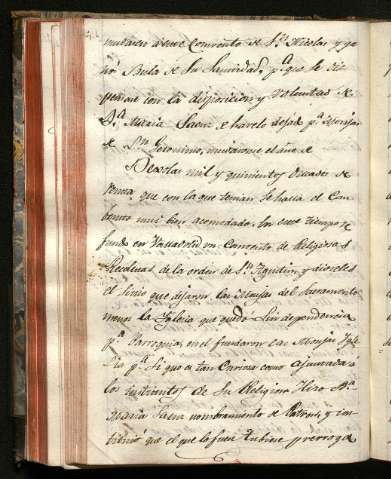 mudasen a este Convento de Sn. Nicolas y ga
nó Bula de Su Santidad, pa. que se dis
pensase con la disposicion y voluntad de
Da. Maria Saenz e havelo dejado pa. Monjas
de Sn. Geronimo, mudaronse el año de
mil y quinientos
renta que con la que tenian se halla el Con
bento mui bien acomodado. En este tiempo se
fundo en Valladolid un Convento de Religiosas
Recoletas de la orden de Sn. Agustin y dioseles
el Sitio que dejaron las Monjas del Sacramento
menos la Yglesia que quedó Sin dependencia
pa. Parroquia, en el fundaron las Monjas Ygle
Sia pa. Si que es tan Curiosa como ajustada á
los institutos de Su Religion. Hizo Da.
Maria Saenz nombramiento de Patron, y con
dicion que el que lo fuere tubiese prerroga